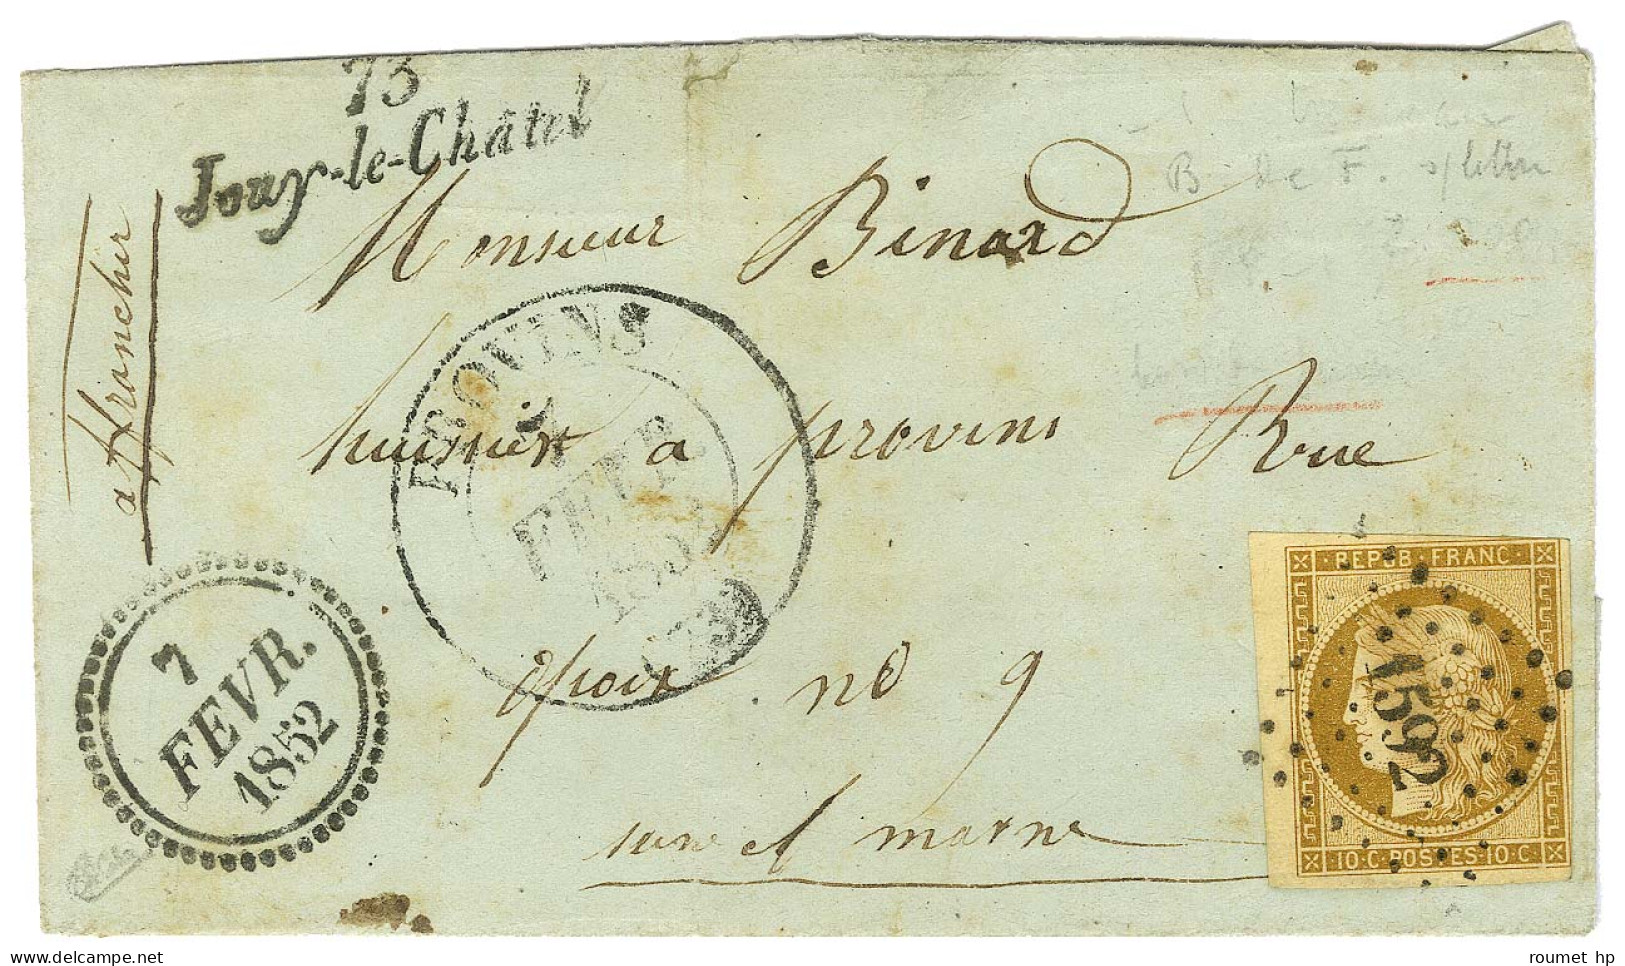 73
Jouy-le-Châtel
a affranchir
Monsieur Binard
huissier a provins Rue
opoix no 9
seine et marne
PROVINS
7
FEVR.
1852
(73)
7
FEVR.
1852
REPUB·FRANC·
10·C·POSTES·10·C
B de F. s/lettre
roumet hp